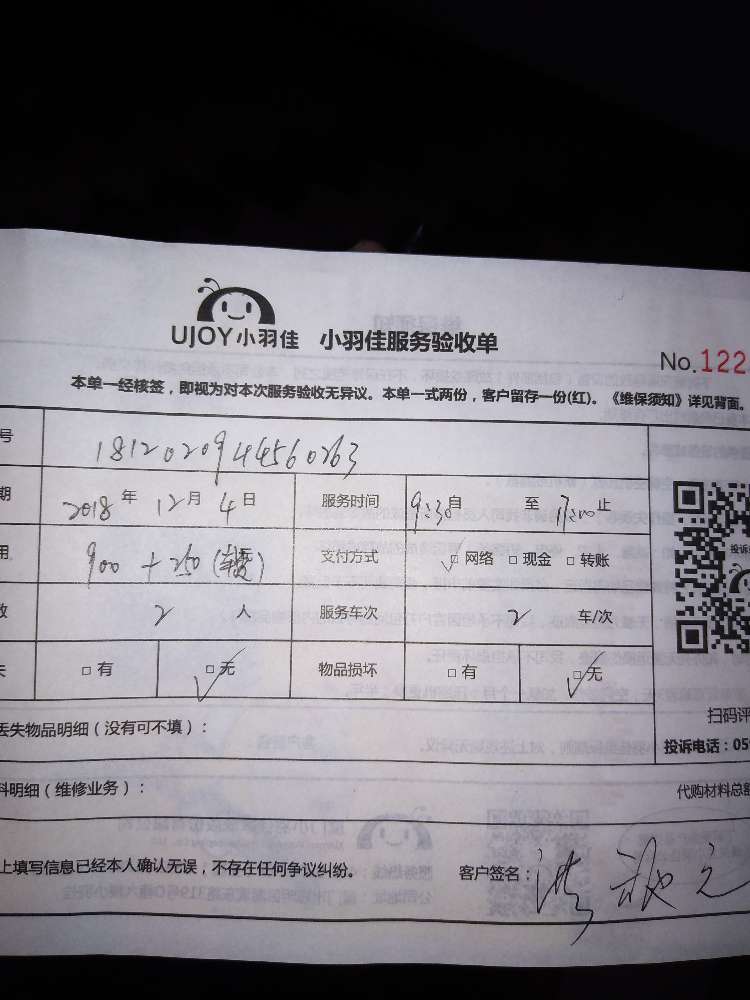 UJOY小羽佳 小羽佳服务验收单
No.122
本单一经核签，即视为对本次服务验收无异议。本单一式两份，客户留存一份(红)。《维保须知》详见背面。
号 1812020944560263
期 2018年12月4日 服务时间 9:30自 至17:00止
用 900+250 支付方式 网络 现金 转账
数 2人 服务车次 2 车/次
失 有 无 物品损坏 有 无
扫码评
丢失物品明细（没有可不填）：
投诉电话：05
料明细（维修业务）：
代购材料总额
上填写信息已经本人确认无误，不存在任何争议纠纷。 客户签名：